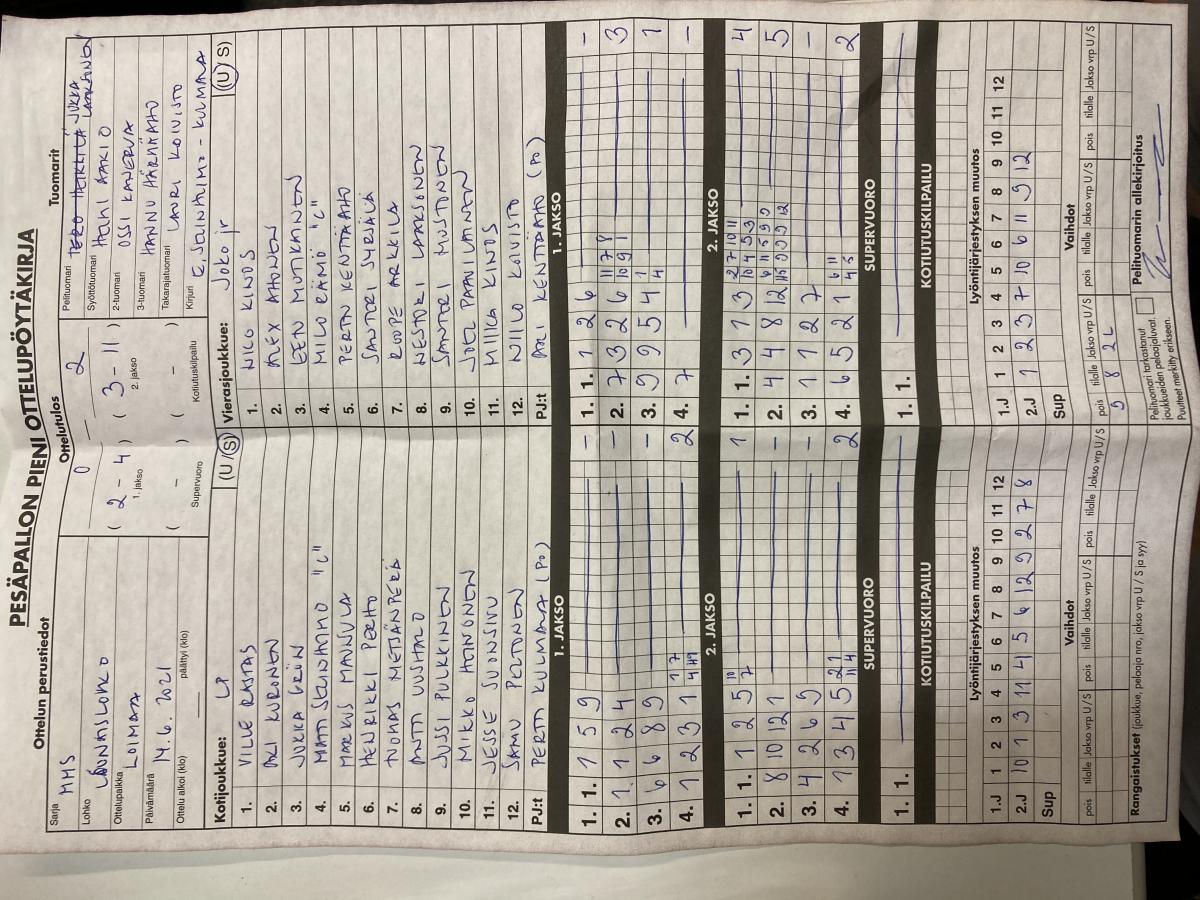 PESÄPALLON PIENI OTTELUPÖYTÄKIRJA
Ottelun perustiedot
Sarja MMS
Lohko LOUNASLOHKO
Ottelupaikka LOIMAA
Päivämäärä 14.6.2021
Ottelu alkoi (klo) päättyi (klo)
Ottelutulos
0 – 2
( 2 – 4 ) ( 3 – 11 )
1. jakso 2. jakso
( – ) ( – )
Supervuoro Kotiutuskilpailu
Tuomarit
Pelituomari TERO HEIKKILÄ JUKKA LAAKSONEN
Syöttötuomari AAKIO
2-tuomari OSSI KANERVA
3-tuomari HANNU HÄRMÄAHO
Takarajatuomari LAURI KOIVISTO
Kirjuri E. SEINHIMO - KULMALA
Kotijoukkue: LP (U / S)
1. VILLE RASTAS
2. ARI KURONEN
3. JUKKA GRÖN
4. MATTI SEINHIMO "C"
5. MARKUS MANSULA
6. HENRIKKI PERHO
7. TUOMAS METSÄNPERÄ
8. ANTTI UUSITALO
9. JUSSI PULKKINEN
10. MIKKO HEINONEN
11. JESSE SUONSIVU
12. SAMU PELTONEN
PJ:t PERTTI KULMALA (PO)
Vierasjoukkue: JoKo jr (U / S)
1. NILO KINOS
2. ALEX AHONEN
3. EETU MUTIKAINEN
4. MILO RÄMÖ "C"
5. PERTTU KENTTÄAHO
6. SANTERI SYRJÄLÄ
7. ROOPE ARKKILA
8. NESTORI LAAKSONEN
9. SANTERI MUSTONEN
10. JOEL PAAVILAINEN
11. MIIKA KINOS
12. NIILO KOIVISTO
PJ:t ARI KENTTÄAHO (PO)
1. JAKSO
1. 1. 1 5 9 –
2. 1 1 2 4 –
3. 6 6 8 9 –
4. 1 2 3 1 2
1. JAKSO
1. 1. 1 2 6 –
2. 7 3 2 6 3
3. 9 9 5 4 1
4. 7 –
2. JAKSO
1. 1. 1 2 5 1
2. 8 10 12 1 –
3. 4 2 6 9 –
4. 1 3 4 5 2
2. JAKSO
1. 1. 3 1 3 4
2. 4 4 8 12 5
3. 1 1 2 7 –
4. 6 5 2 1 2
SUPERVUORO
1. 1.
SUPERVUORO
1. 1.
KOTIUTUSKILPAILU
KOTIUTUSKILPAILU
Lyöntijärjestyksen muutos
1.J 1 2 3 4 5 6 7 8 9 10 11 12
2.J 10 1 3 11 4 5 6 12 9 2 7 8
Sup
Lyöntijärjestyksen muutos
1.J 1 2 3 4 5 6 7 8 9 10 11 12
2.J 1 2 3 7 10 6 11 9 12
Sup
Vaihdot
pois tilalle Jakso vrp U / S pois tilalle Jakso vrp U / S pois tilalle Jakso vrp U / S
Vaihdot
pois tilalle Jakso vrp U / S pois tilalle Jakso vrp U / S pois tilalle Jakso vrp U / S
5 8 2L
Rangaistukset (joukkue, pelaaja nro, jakso vrp U / S ja syy)
Pelituomari tarkastanut
joukkueiden pelaajaluvat.
Puutteet merkitty erikseen.
Pelituomarin allekirjoitus